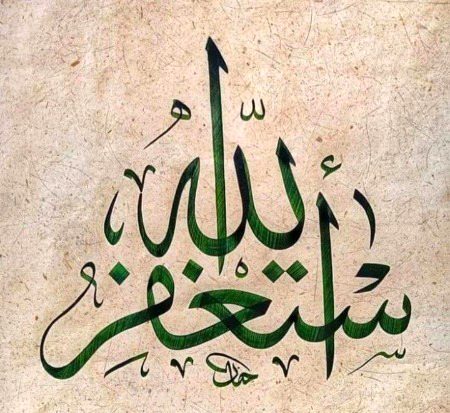 أستغفر
الله